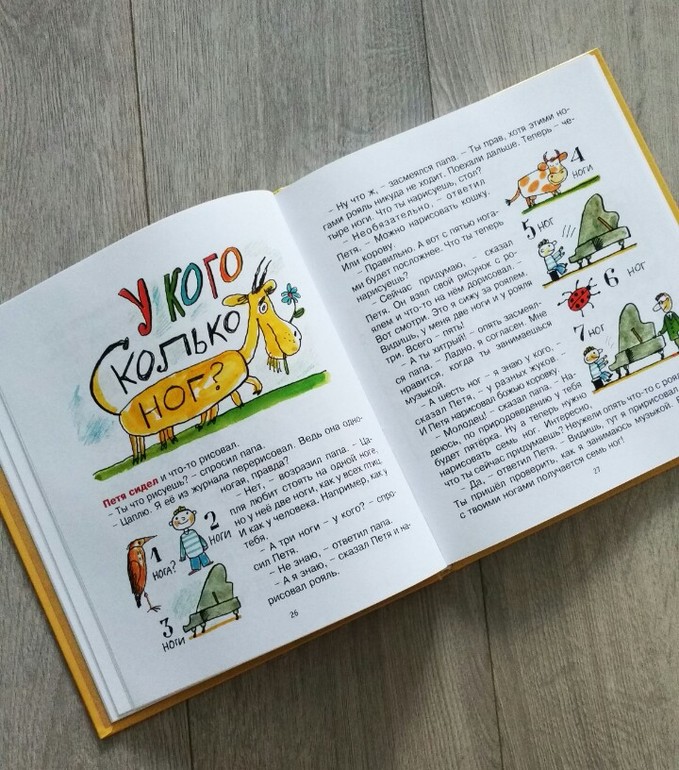 У КОГО
СКОЛЬКО
НОГ?
Петя сидел и что-то рисовал.
– Ты что рисуешь? – спросил папа.
– Цаплю. Я её из журнала перерисовал. Ведь она одно-
ногая, правда?
– Нет, – возразил папа. – Ца-
пля любит стоять на одной ноге,
но у неё две ноги, как у всех птиц.
И как у человека. Например, как у
тебя.
– А три ноги – у кого? – спро-
сил Петя.
– Не знаю, – ответил папа.
– А я знаю, – сказал Петя и на-
рисовал рояль.
1
НОГА?
2
НОГИ
3
НОГИ
26
– Ну что ж, – засмеялся папа. – Ты прав, хотя этими но-
гами рояль никуда не ходит. Поехали дальше. Теперь – че-
тыре ноги. Что ты нарисуешь, стол?
– Необязательно, – ответил
Петя. – Можно нарисовать кошку.
Или корову.
– Правильно. А вот с пятью нога-
ми будет посложнее. Что ты теперь
нарисуешь?
– Сейчас придумаю, – сказал
Петя. Он взял свой рисунок с ро-
ялем и что-то на нём дорисовал. –
Вот смотри. Это я сижу за роялем.
Видишь, у меня две ноги и у рояля
три. Всего – пять!
– А ты хитрый! – опять засмеял-
ся папа. – Ладно, я согласен. Мне
нравится, когда ты занимаешься
музыкой.
– А шесть ног – я знаю у кого. –
сказал Петя, – у разных жуков. –
И Петя нарисовал божью коровку.
– Молодец! – сказал папа. – На-
деюсь, по природоведению у тебя
будет пятёрка. Ну а теперь нужно
нарисовать семь ног. Интересно,
что ты сейчас придумаешь? Неужели опять что-то с роя
– Да, – ответил Петя. – Видишь, тут я пририсовал
Ты пришёл проверить, как я занимаюсь музыкой.
с твоими ногами получается семь ног!
4
НОГИ
5 НОГ
6 НОГ
7 НОГ
27